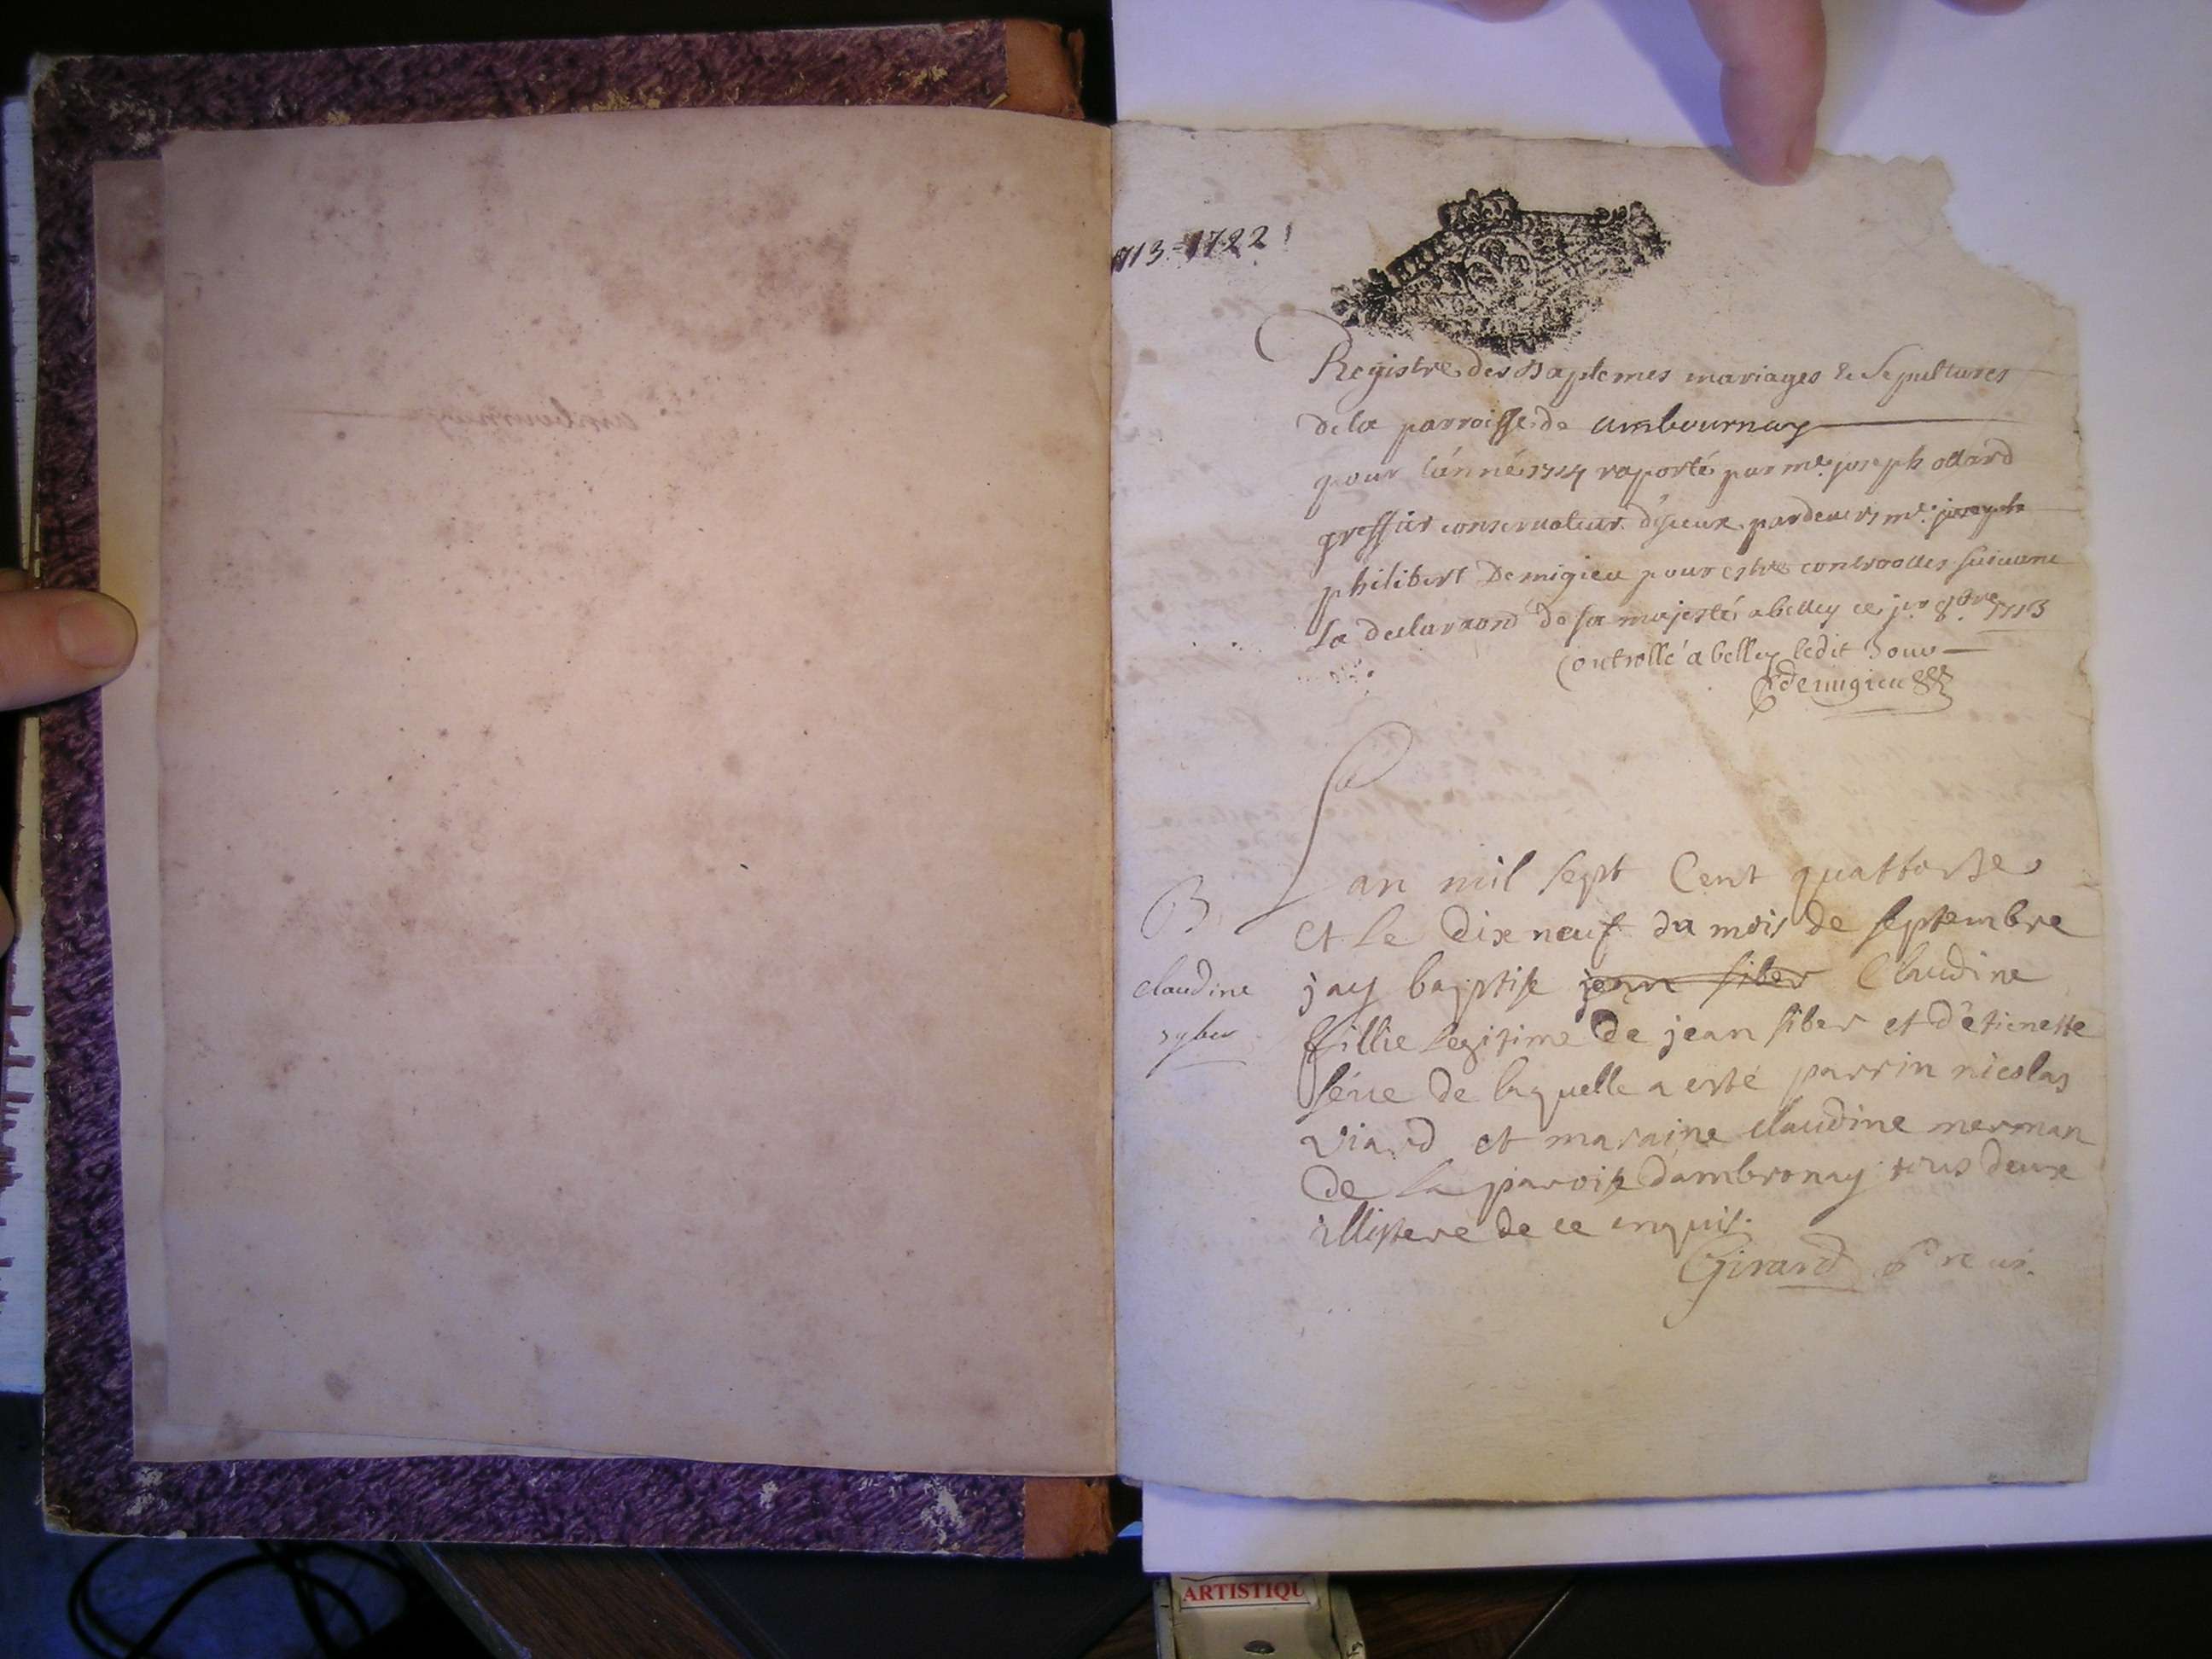 1713-1722
Registre des Baptemes mariages & Sepultures
de la parroisse de ambournay
pour l'année 1714 raporté par me joseph ollard
greffier conservateur d'iceux pardevers me joseph
philibert Demigieu pour estre controolles suivant
la declaraond de sa majesté a belley ce jer 8bre 1713
Controllé a belley ledit Jour
demigieu
Lan mil sept Cent quattorse
B et le dix neuf du mois de septembre
claudine jay baptise jean siber Claudine
syber fillie legitime de jean siber et d'étienette
séue de laquelle a esté parrin nicolas
viard et maraine claudine merman
de la paroise d'ambronay tous deux
illistere de ce enquis.
Girard
ARTISTIQU